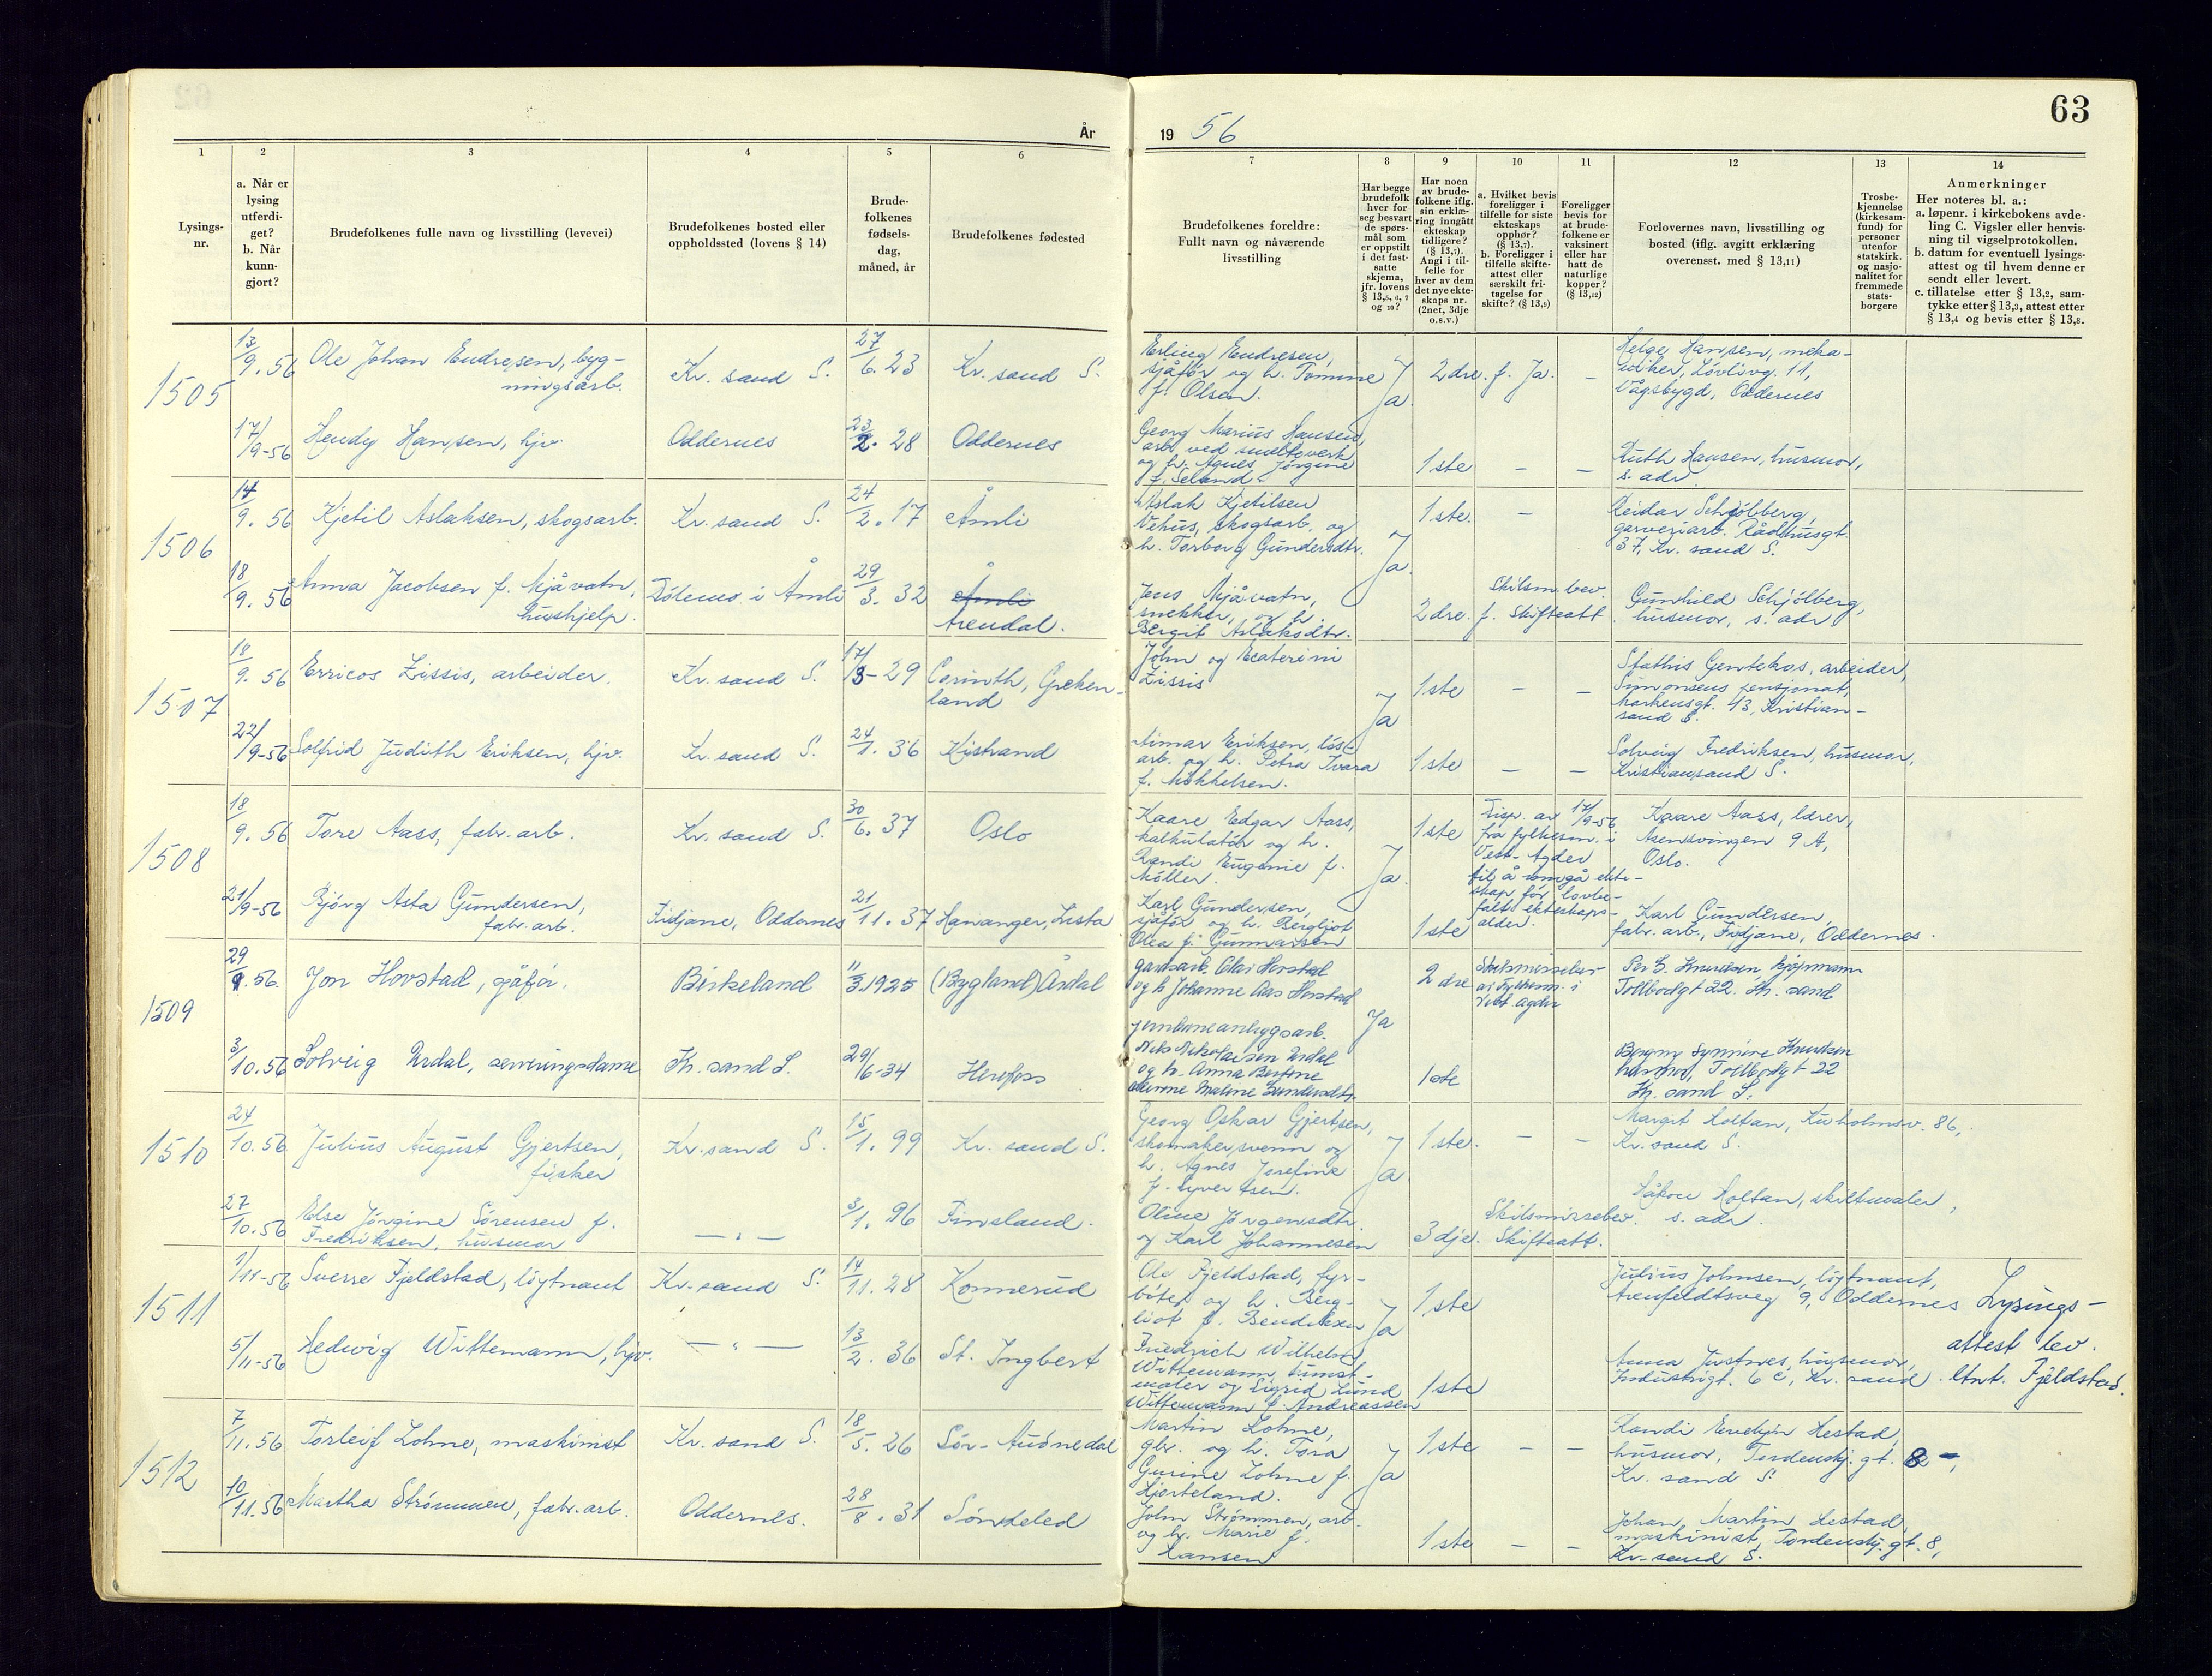 63
År
19 56
1
2
3
4
5
6
7
8
9
10
11
12
13
14
Lysings-
nr.
a. Når er
lysing
utferdi-
get?
b. Når
kunn-
gjort?
Brudefolkenes fulle navn og livsstilling (levevei)
Brudefolkenes bosted eller
oppholdssted (lovens § 14)
Brude-
folkenes
fødsels-
dag,
måned, år
Brudefolkenes fødested
Brudefolkenes foreldre:
Fullt navn og nåværende
livsstilling
Har begge
brudefolk
hver for
seg besvart
de spørs-
mål som
er oppstilt
i det fast-
satte
skjema,
jfr. lovens
§ 13,5, 6, 7
og 10?
Har noen
av brude-
folkene iflg.
sin erklæ-
ring inngått
ekteskap
tidligere?
(§ 13,7).
Angi i til-
felle for
hver av dem
det nye ekte-
skaps nr.
(2net, 3dje
o.s.v.)
a. Hvilket bevis
foreligger i
tilfelle for siste
ekteskaps
opphør?
(§ 13,7).
b. Foreligger i
tilfelle skifte-
attest eller
særskilt fri-
tagelse for
skifte? (§ 13,9)
Foreligger
bevis for
at brude-
folkene er
vaksinert
eller har
hatt de
naturlige
kopper?
(§ 13,12)
Forlovernes navn, livsstilling og
bosted (iflg. avgitt erklæring
overensst. med § 13,11)
Trosbe-
kjennelse
(kirkesam-
fund) for
personer
utenfor
statskirk.
og nasjo-
nalitet for
fremmede
stats-
borgere
Anmerkninger
Her noteres bl. a.:
a. løpenr. i kirkebokens avde-
ling C. Vigsler eller henvis-
ning til vigselprotokollen.
b. datum for eventuell lysings-
attest og til hvem denne er
sendt eller levert.
c. tillatelse etter § 13,2, sam-
tykke etter § 13,3, attest etter
§ 13,4 og bevis etter § 13,8.
1505
13/9. 56 Ole Johan Endresen, byg-
ningsarb.
Kr. sand S.
27/6. 23
Kr. sand S.
Erling Endresen,
sjåfør og h. Tomine
f. Olsen.
Ja
2dre. f. Ja. –
Helge Hansen, meka-
niker, Lövlivg. 11,
Vågsbygd, Oddernes
17/9-56 Hendy Hansen, hjv.
Oddernes
23/2. 28
Oddernes
Georg Marius Hansen,
arb. ved smelteverk
og h. Agnes Jörgine
f. Seland
1ste – –
Ruth Hansen, husmor,
s. adr.
1506
14/9. 56 Kjetil Aslaksen, skogsarb.
Kr. sand S.
24/2. 17
Åmli
Aslak Kjetilsen
Vehus, skogsarb. og
h. Torborg Gundersdtr.
Ja.
1ste. –
Reidar Schjölberg,
garveriarb. Rådhusgt.
37, Kr. sand S.
18/9. 56 Anna Jacobsen f. Mjåvatn,
hushjelp.
i Åmli
29/3. 32
Åmli
Arendal.
Jens Mjåvatn,
snekker, og h.
Bergit Aslaksdtr.
2dre. f.
Skilsm. bev.
Skifteatt.
Gunhild Schjölberg,
husmor, s. adr.
1507
18/9. 56 Erricos Zissis, arbeider.
Kr. sand S.
17/8-29
Corinth, Greken-
land
John og Ecaterini
Zissis
Ja
1ste – –
Stathis Gentekos, arbeider,
Simonsens pensjonat,
Markensgt. 43, Kristian-
sand S.
22/9-56 Solfrid Judith Eriksen, hjv.
Kr. sand S.
24/1. 36
Kistrand
Aimar Eriksen, løs-
arb. og h. Petra Ivara
f. Mikkelsen.
1ste – –
Solveig Fredriksen, husmor,
Kristiansand S.
1508
18/9. 56 Tore Aass, fabr. arb.
Kr. sand S.
30/6. 37
Oslo
Kaare Edgar Aass,
kalkulatör og h.
Randi Eugenie f.
Möller.
Ja.
1ste
Disp. av 17/9-56
fra fylkesm. i
Vest-Agder
til å inngå ekte-
skap før lovbe-
falt ekteskaps-
alder.
Kaare Aass, lærer,
Asensvingen 9 A,
Oslo.
21/9-56 Björg Asta Gundersen,
fabr. arb.
Fidjane, Oddernes
21/11. 37
Hananger, Lista
Karl Gundersen,
sjåfør og h. Bergljot
Olea f. Gunnarsen
1ste
Karl Gundersen,
fabr. arb., Fidjane, Oddernes.
1509
29/9. 56. Jon Hovstad, sjåfør.
Birkeland
11/3.1925
(Bygland) Årdal
gardsarb. Olai Hovstad
og h Johanne Aas Hovstad
Ja
2 dre
Skilsmissebev
av fylkesm. i
Vest-Agder
Per E. Knudsen, kjøpmann
Tollbodgt 22. Kr. sand
3/10.56 Solveig Urdal, serveringsdame
Kr. sand S.
29/6-34
Herefoss
jernbaneanleggsarb.
Nils Nikolaisen Urdal
og h. Anna
Malene Gundersdtr.
1ste
Synnöve Knudsen
husmor, Tollbodgt 22
Kr. sand S.
1510
24/10.56 Julius August Gjertsen,
fisker
Kr. sand S.
15/1. 99
Kr. sand S.
Georg Oskar Gjertsen,
skomakersvenn og
h. Agnes Josefine
f. Syvertsen.
Ja
1ste. – –
Margit Holtan, Kuholmsv. 86,
Kr. sand S.
27/10.56 Else Jörgine Sörensen f.
Fredriksen, husmor
— " —
3/1. 96
Finsland.
Oline Jörgensdtr.
og Karl Johannesen
3dje.
Skilsmissebev.
Skifteatt.
Håkon Holtan, skiltmaler,
s. adr.
1511
1/11-56 Sverre Fjeldstad, löytnant
Kr. sand S.
14/11. 28
Konnerud
Ole Fjeldstad, fyr-
böter og h. Berg-
liot f. Bendiksen
Ja
1ste
Julius Johnsen, löytnant,
Arenfeldtsveg 9, Oddernes
Lysings-
attest lev.
ltnt. Fjeldstad.
5/11-56 Hedwig Wittemann, hjv.
— " —
13/2. 36
St. Ingbert
Friedrich Wilhelm
Wittemann, kunst-
maler og Sigrid Lund
Wittemann f. Andreassen
1ste
Anna Justnes, husmor,
Industrigt. 6 c, Kr. sand.
1512
7/11.56 Torleif Lohne, maskinist
Kr. sand S.
18/5. 26
Sör-Audnedal
Martin Lohne,
gbr. og h. Tora
Gurine Lohne f.
Hjorteland.
Ja
1ste – –
Randi Hestad,
husmor, Tordenskj. gt. 8
Kr. sand S.
10/11.56 Martha Strömmen, fabr. arb.
Oddernes.
28/8. 31
Söndeled
John Strömmen, arb.
og h. Marie f.
Hansen
1ste – –
Johan Martin Hestad,
maskinist, Tordenskj. gt. 8,
Kr. sand S.